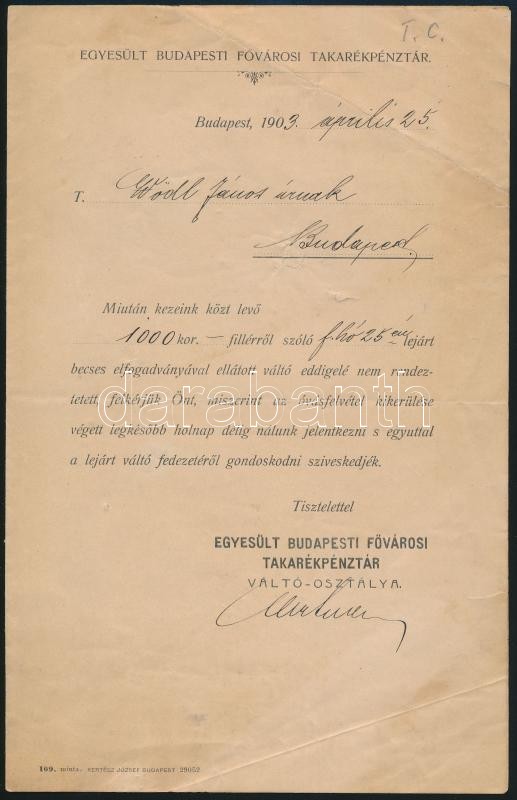 T. C.
EGYESÜLT BUDAPESTI FŐVÁROSI TAKARÉKPÉNZTÁR.
Budapest, 1903. április 25.
T. Wödl János úrnak
Budapest.
Miután kezeink közt levő
1000 kor. — fillérről szóló f. hó 25 én lejárt
becses elfogadványával ellátott váltó eddigelé nem rendez-
tetett, felkérjük Önt, miszerint az óvásfelvétel kikerülése
végett legkésőbb holnap délig nálunk jelentkezni s egyuttal
a lejárt váltó fedezetéről gondoskodni sziveskedjék.
darabanth
Tisztelettel
EGYESÜLT BUDAPESTI FŐVÁROSI
TAKARÉKPÉNZTÁR
VÁLTÓ-OSZTÁLYA.
109. minta. KERTÉSZ JÓZSEF BUDAPEST 29052